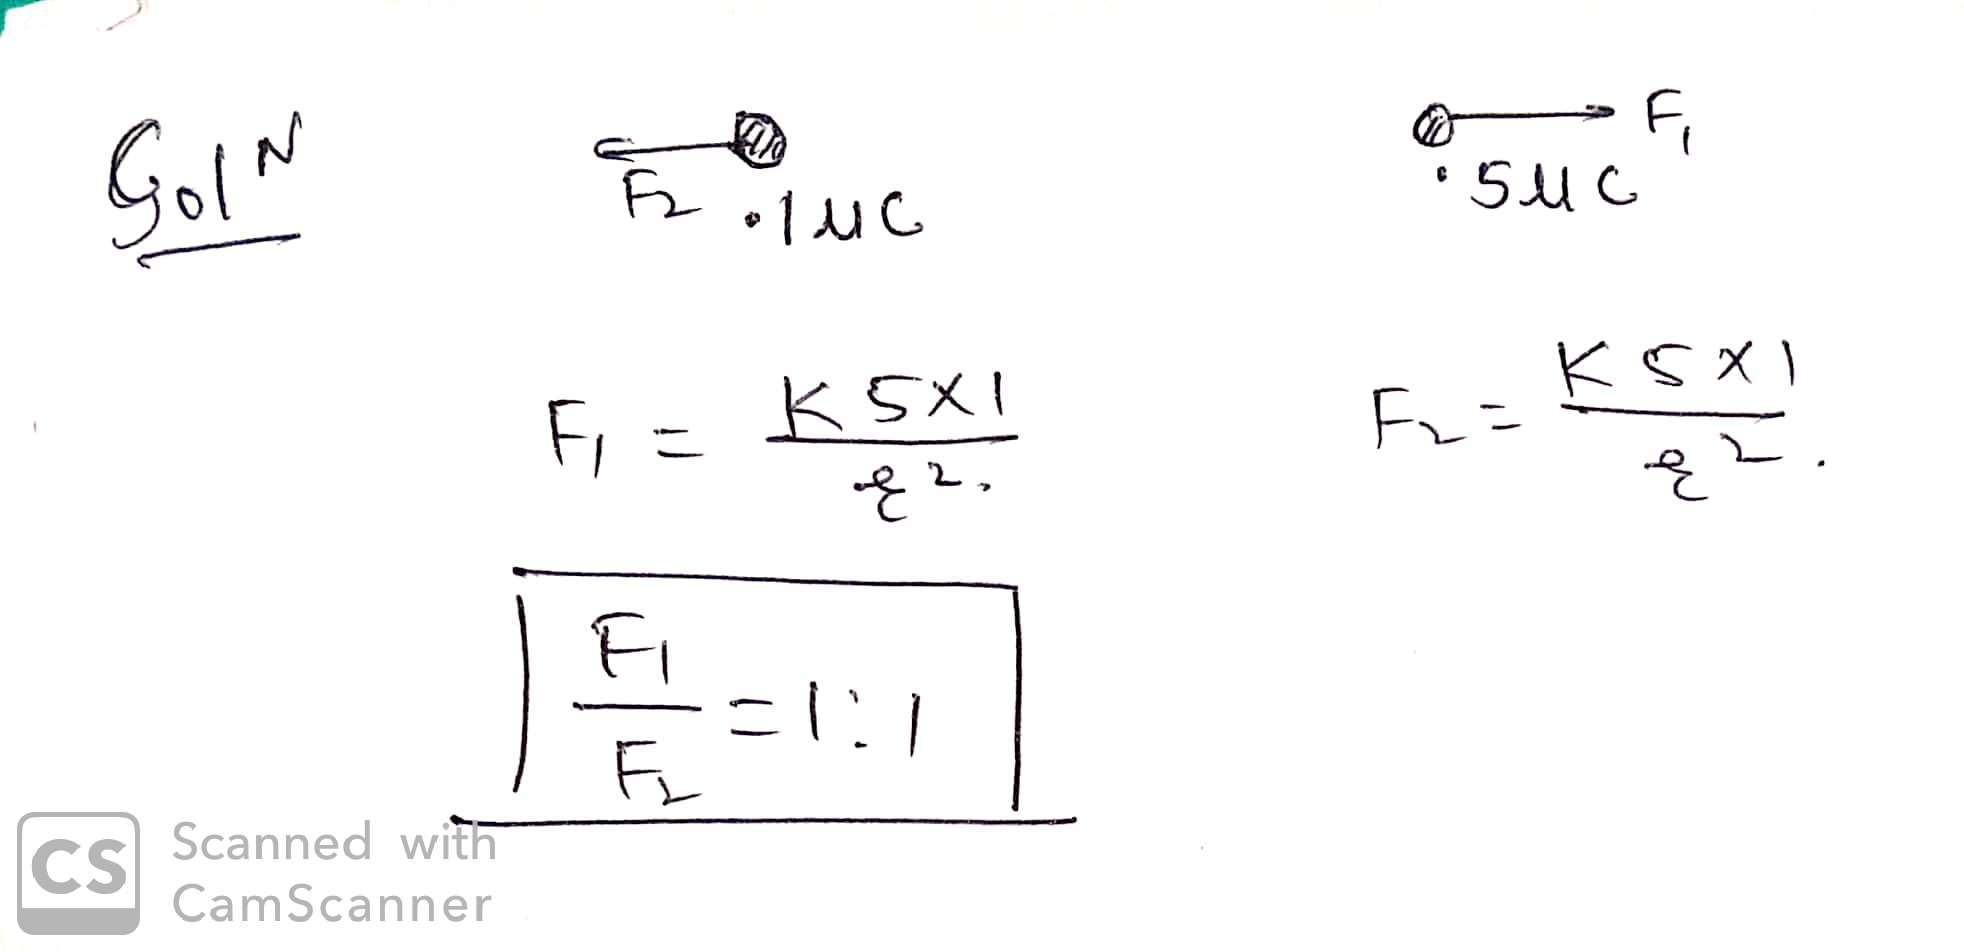 Sol N
F2 .1 μC
F1
.5 μC
F1 = K 5×1 / r².
F2 = K 5×1 / r².
F1 / F2 = 1:1
CS Scanned with
CamScanner